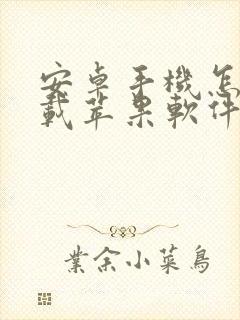 安卓手機怎
載苹果軟件
業余小菜鳥